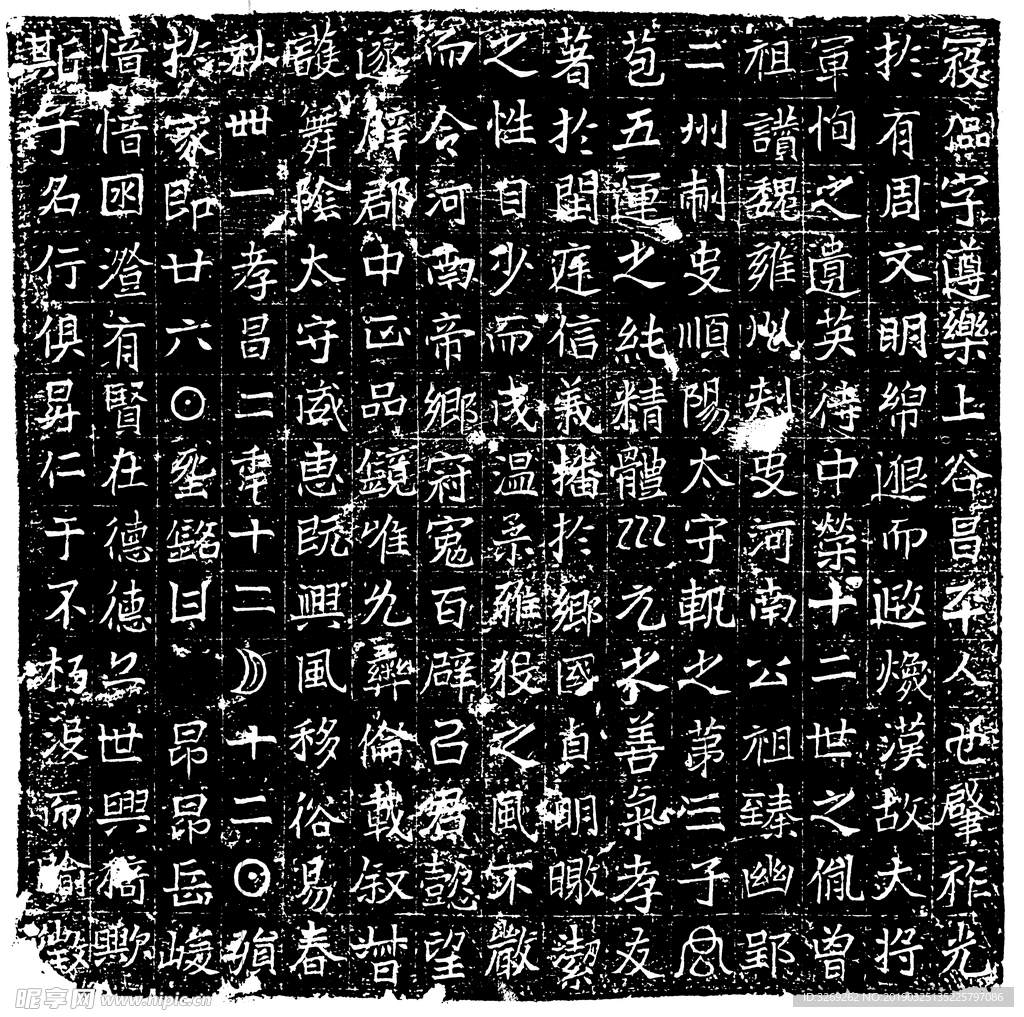 寇偘字遵樂上谷昌平人也肇祚光
於有周文明綿遐而政煥漢故大將
軍恂之遺英侍中榮十二世之胤曾
祖讃魏雍州刺史河南公祖臻幽郢
二州刺史順陽太守軌之第三子
苞五運之純精體巛元之善氣孝友
著於閨庭信義播於鄉國真明曒潔
之性自少而成温柔雅之風不嚴
而合河南帝鄉冠冕百辟己君懿望
遂辟郡中正品鏡唯允彝倫載叙昔
護舞陰太守威恵既興風移俗易春
秋卌一孝昌二年十二月十二日殞
於家即廿六日塋銘曰 昂昂岳峻
愔愔囦澄有賢在德德之世興猗歟
斯子名行俱昇仁于不朽沒而喻徵
昵享网 www.nipic.cn
ID:3269262 NO:20190325135225797086